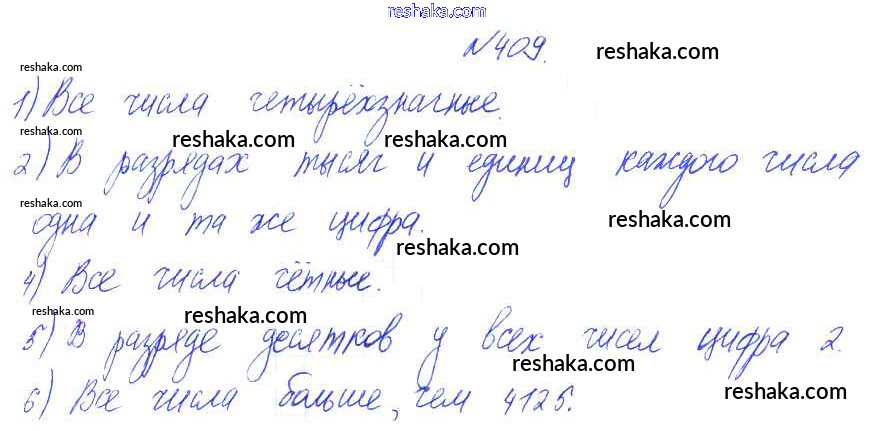 reshaka.com
№409. reshaka.com
reshaka.com
1) Все числа четырёхзначные.
reshaka.com reshaka.com reshaka.com
2) В разрядах тысяч и единиц каждого числа
reshaka.com
одна и та же цифра. reshaka.com
reshaka.com
4) Все числа чётные.
reshaka.com reshaka.com
5) В разряде десятков у всех чисел цифра 2.
reshaka.com
6) Все числа больше, чем 4125. reshaka.com